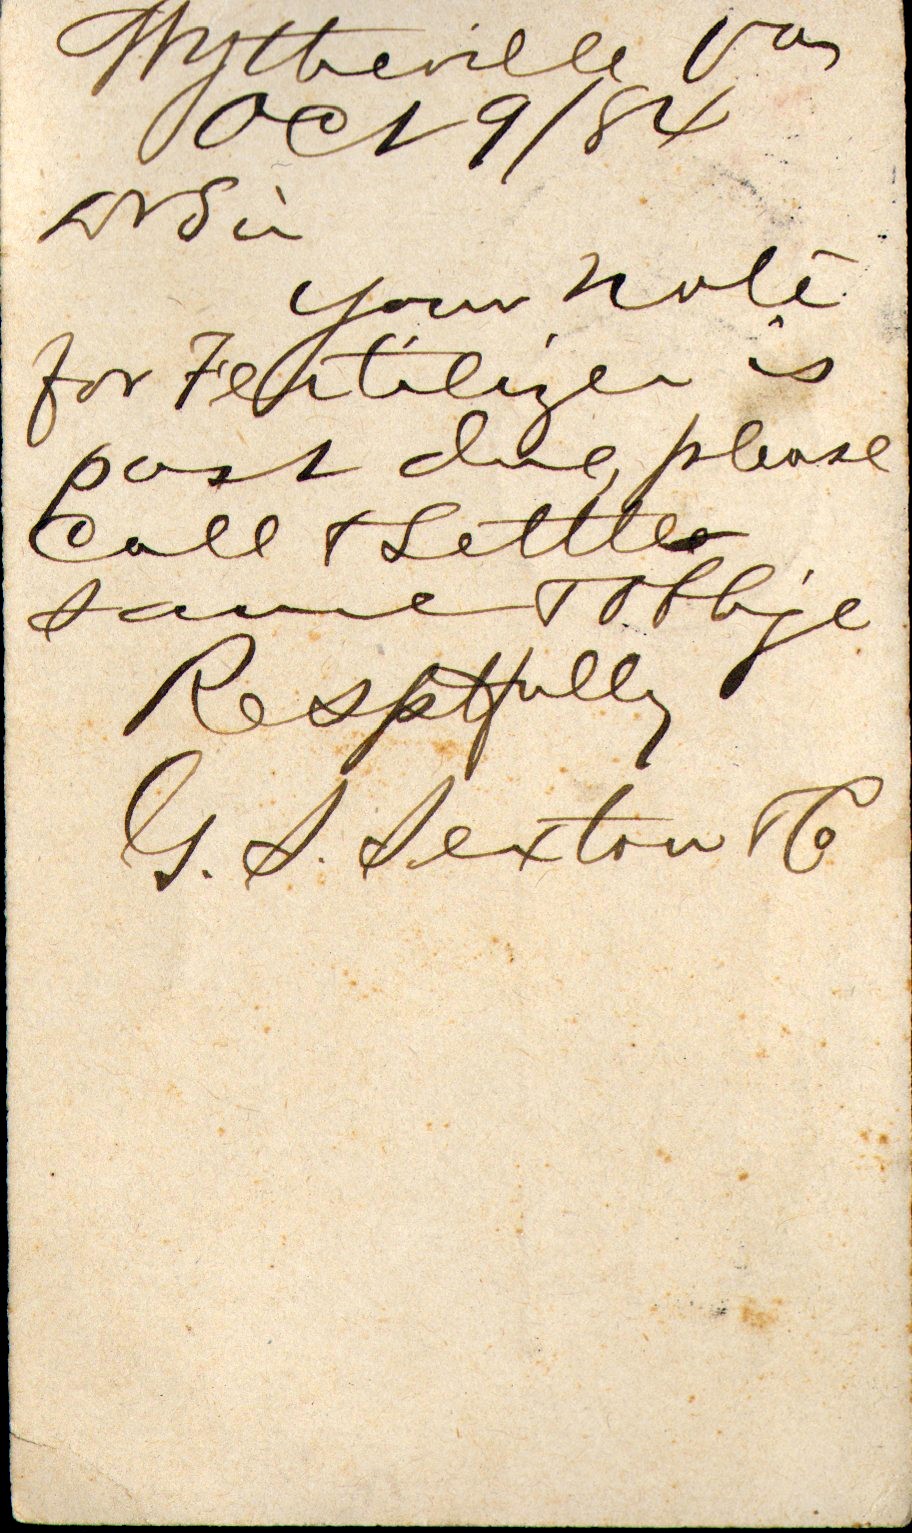 Wytheville Va
Oct 9/84
Dr Sir
Your note
for Fertilizer is
past due, please
Call & Settle
same & oblige
Resptfully
G. S. Sexton & Co